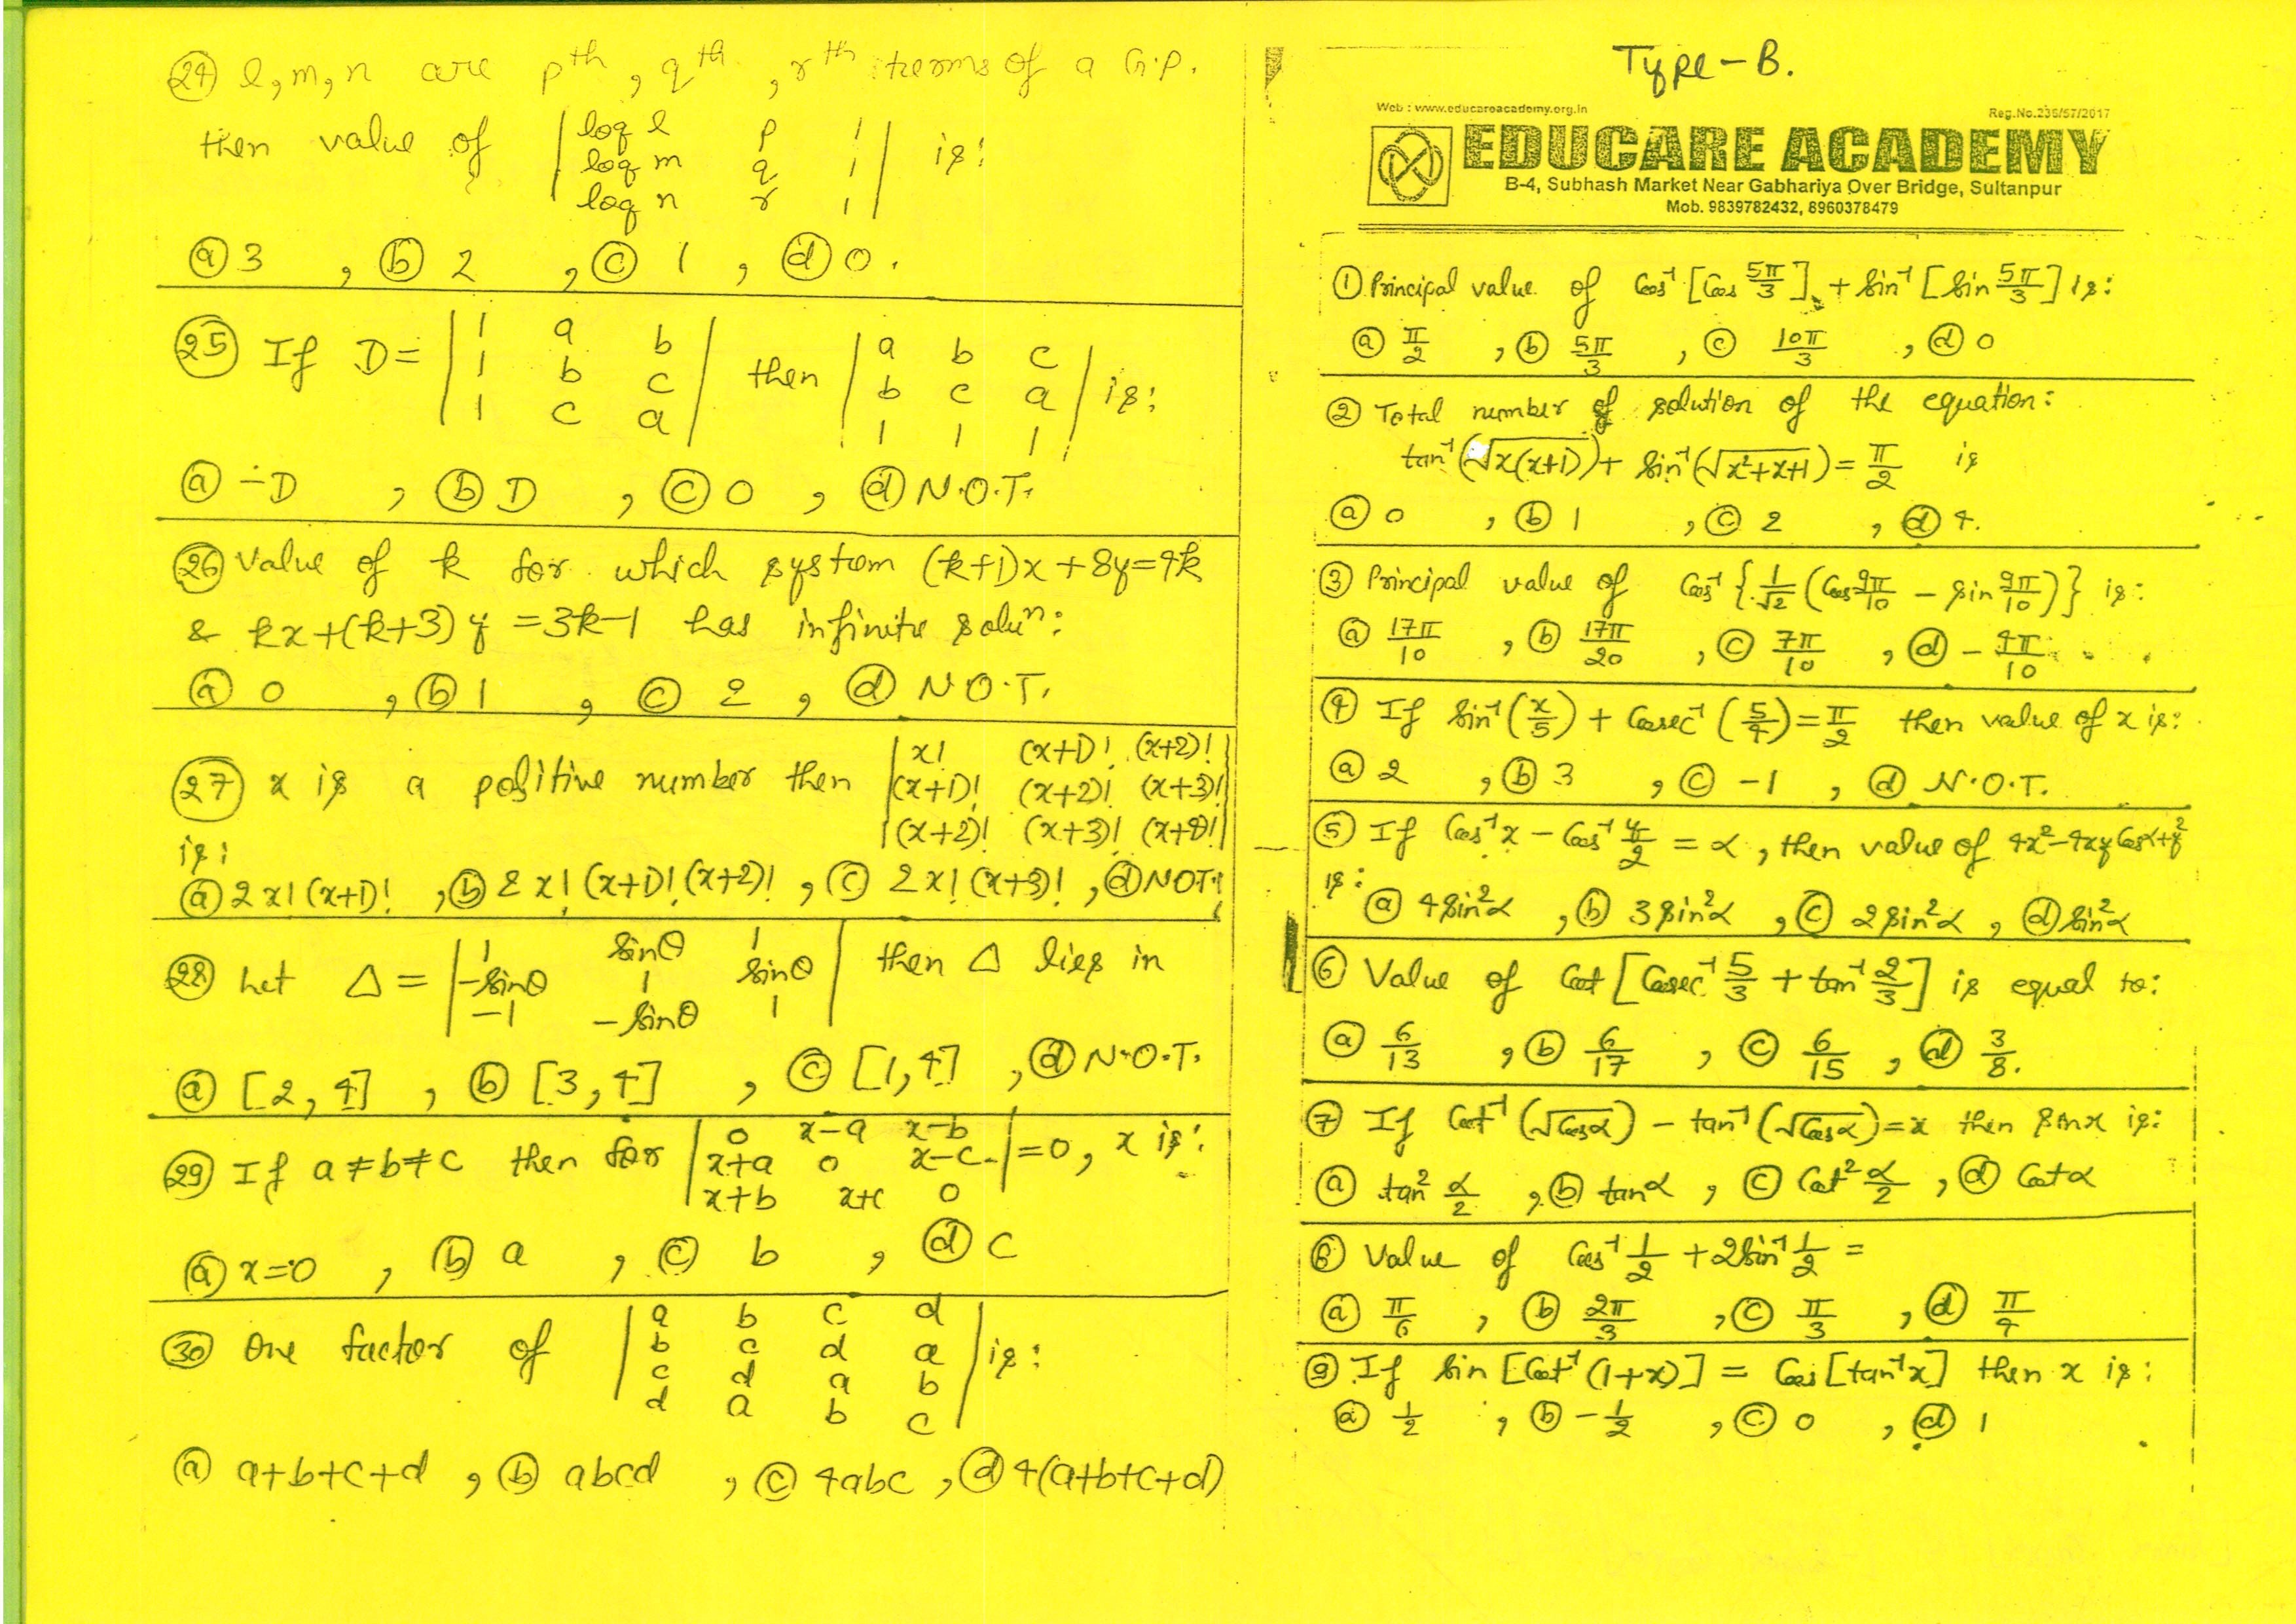 24 l, m, n are pth, qth, rth terms of a G.P.
then value of | log l p 1 | is:
| log m q 1 |
| log n r 1 |
a 3 , b 2 , c 1 , d 0.
25 If D = | 1 a b | then | a b c | is:
| 1 b c | | b c a |
| 1 c a | | 1 1 1 |
a -D , b D , c 0 , d N.O.T.
26 Value of k for which system (k+1)x + 8y = 4k
& kx + (k+3)y = 3k-1 has infinite soluⁿ:
a 0 , b 1 , c 2 , d N.O.T.
27 x is a positive number then | x! (x+1)! (x+2)! |
| (x+1)! (x+2)! (x+3)! |
| (x+2)! (x+3)! (x+4)! |
is:
a 2 x! (x+1)! , b 2 x! (x+1)! (x+2)! , c 2 x! (x+3)! , d NOT.
28 Let Δ = | 1 sinθ 1 | then Δ lies in
| -sinθ 1 sinθ |
| -1 -sinθ 1 |
a [2, 4] , b [3, 4] , c [1, 4] , d N.O.T.
29 If a ≠ b ≠ c then for | 0 x-a x-b | = 0, x is:
| x+a 0 x-c |
| x+b x+c 0 |
a x=0 , b a , c b , d c
30 One factor of | a b c d | is:
| b c d a |
| c d a b |
| d a b c |
a a+b+c+d , b abcd , c 4abc , d 4(a+b+c+d)
Type-B.
Web : www.educareacademy.org.in Reg.No.236/57/2017
EDUCARE ACADEMY
B-4, Subhash Market Near Gabhariya Over Bridge, Sultanpur
Mob. 9839782432, 8960378479
1 Principal value of Cos⁻¹ [Cos 5π/3] + sin⁻¹ [sin 5π/3] is:
a π/2 , b 5π/3 , c 10π/3 , d 0
2 Total number of solution of the equation:
tan⁻¹ (√x(x+1)) + sin⁻¹ (√x²+x+1) = π/2 is
a 0 , b 1 , c 2 , d 4.
3 Principal value of Cos⁻¹ {1/√2 (Cos 9π/10 - sin 9π/10)} is:
a 17π/10 , b 17π/20 , c 7π/10 , d - 9π/10
4 If sin⁻¹ (x/5) + Cosec⁻¹ (5/4) = π/2 then value of x is:
a 2 , b 3 , c -1 , d N.O.T.
5 If Cos⁻¹ x - Cos⁻¹ y/2 = α, then value of 4x²-4xy Cosα+y²
is: a 4sin²α , b 3sin²α , c 2sin²α , d sin²α
6 Value of Cot [Cosec⁻¹ 5/3 + tan⁻¹ 2/3] is equal to:
a 6/13 , b 6/17 , c 6/15 , d 3/8.
7 If Cot⁻¹ (√Cosα) - tan⁻¹ (√Cosα) = x then sinx is:
a tan² α/2 , b tanα , c Cot² α/2 , d Cotα
8 Value of Cos⁻¹ 1/2 + 2sin⁻¹ 1/2 =
a π/6 , b 2π/3 , c π/3 , d π/4
9 If sin [Cot⁻¹ (1+x)] = Cos [tan⁻¹x] then x is:
a 1/2 , b -1/2 , c 0 , d 1